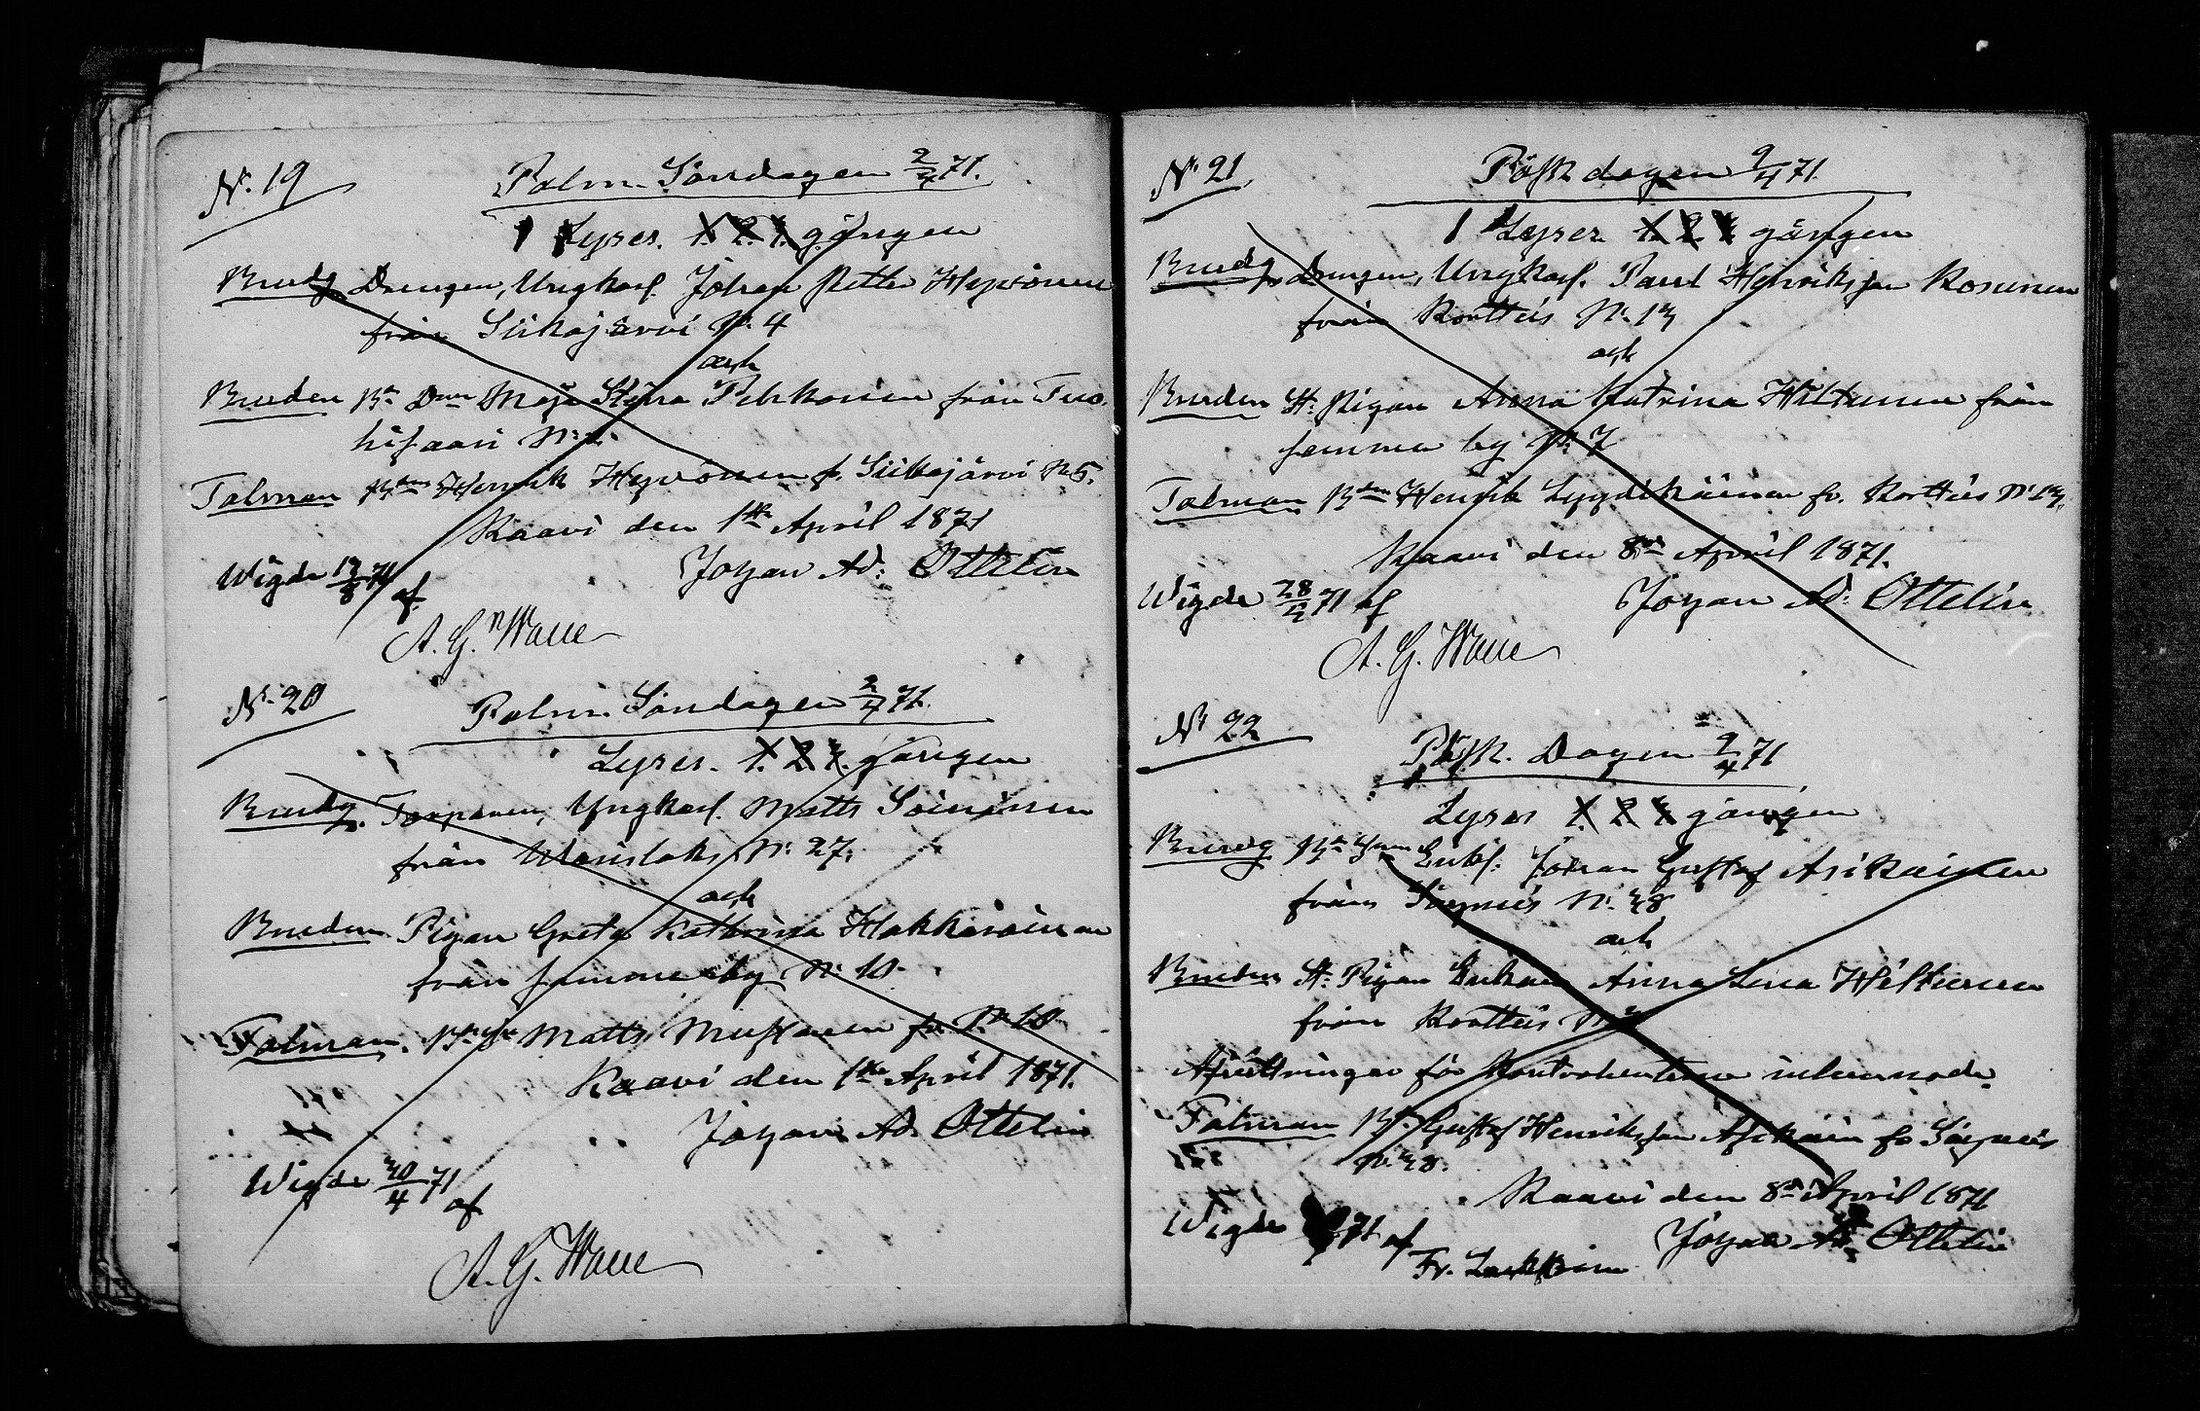 N:o 19
Palm Söndagen 2/4 71.
1 Lyses. 1. 2. 3. gången
Brudg Drengen, Ungkarl. Johan Petter Hyvönen
från Siikajärvi N:o 4
och
Bruden Bd Dttr Maja Stina Pehkoinen från Tuo-
hisaari N:o
Talman Bden Henrik Hyvönen fr. Siikajärvi N 5.
Kaavi den 1ste April 1871
Johan Ad: Ottelin
Wigde 71 af
A. G. Walle
N:o 20
Palm Söndagen 2/4 71.
Lyses. 1. 2. 3. gången
Brudg. Torparen, Ungkarl. Matts Soininen
från N:o 27.
och
Bruden Pigan Greta Kathrina Hakkarainen
från samma by N:o 10
Talman. Matts Mustonen fr. N 10
Kaavi den 1ste April 1871.
Johan Ad. Ottelin
Wigde 30/4 71
af
A. G. Walle
N:o 21
Påsk dagen 9/4 71
1 Lyses 1. 2. 3 gången
Brudg Drengen, Ungkarl. Paul Henriksson Kosunen
från Kortteis N:o 13
och
Bruden It. Pigan Anna Katrina Hiltunen från
samma by N:o 7
Talman Bden Henrik Lyydikäinen fr. Kortteis N:o 13.
Kaavi den 8de April 1871.
Johan Ad: Ottelin
Wigde 28/4 71 af
A. G. Walle
N:o 22
Påsk. Dagen 9/4 71
Lyses 1. 2. 3 gången
Brudg Enkl: Johan Gustaf Asikainen
från Säyneis N:o 38
och
Bruden It. Pigan Enkan Anna Lena Hiltunen
från Kortteis N:o
Afvittringar för Kontrahenterne inlemnade.
Talman B. Gustaf Henriksson Asikain fr Säyneis
N:o 38.
Kaavi den 8de April 1871
Johan Ad Ottelin
Wigde 71 af
Fr.